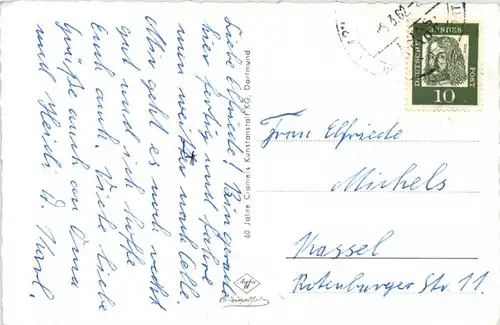 Liebe Elfriede! Bin gerade
hier fertig und fahre
nun weiter nach Celle.
Mir geht es noch recht
gut und ich hoffe
Euch auch. Viele liebe
Grüße auch an Oma
und Heidi D.
60 Jahre Cramers Kunstanstalt KG, Dortmund
3.62
DEUTSCHE BUNDESPOST
10
Frau Elfriede
Michels
Kassel
Rotenburger Str. 11.
Agfa
Originalfoto